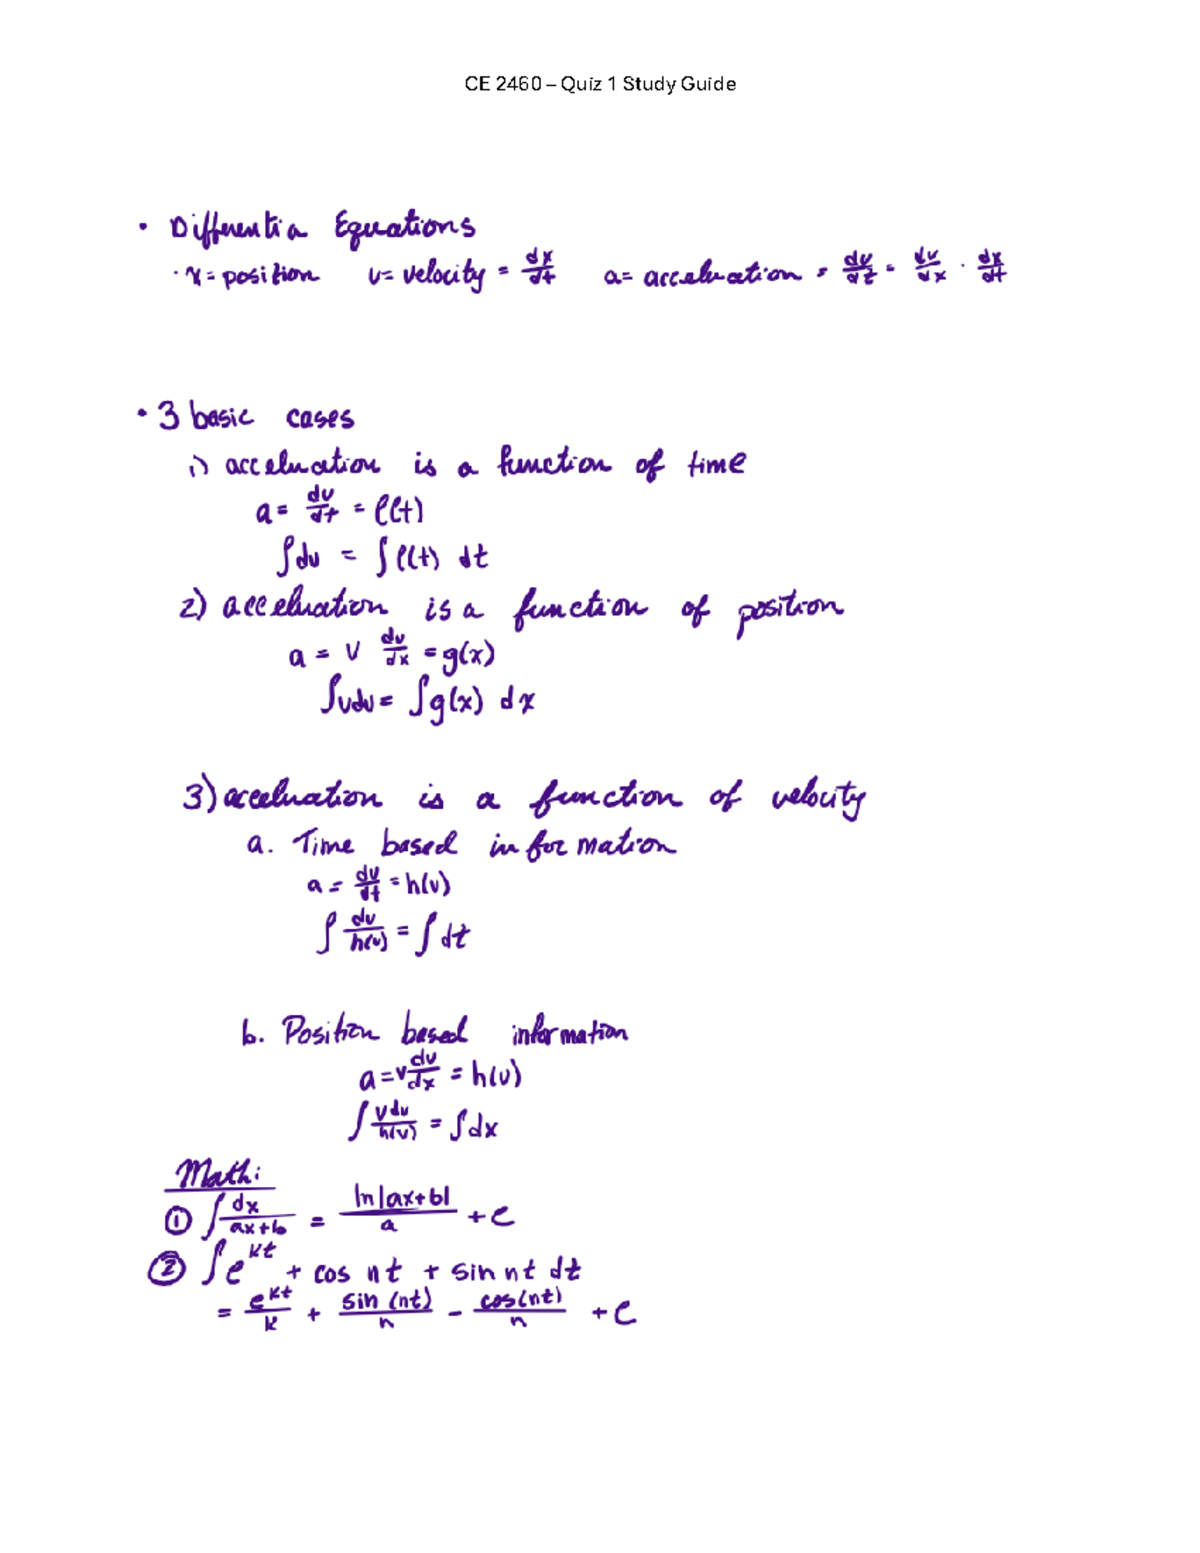 CE 2460 – Quiz 1 Study Guide
• Differentia Equations
· x = position v = velocity = dx/dt a = acceleration = dv/dt = dv/dx · dx/dt
• 3 basic cases
1) acceleration is a function of time
a = dv/dt = f(t)
∫dv = ∫f(t) dt
2) acceleration is a function of position
a = v dv/dx = g(x)
∫vdv = ∫g(x) dx
3) acceleration is a function of velocity
a. Time based information
a = dv/dt = h(v)
∫ dv/h(v) = ∫dt
b. Position based information
a = v dv/dx = h(v)
∫ vdv/h(v) = ∫dx
Math:
① ∫ dx/ax+b = ln|ax+b|/a + c
② ∫e^kt + cos nt + sin nt dt
= e^kt/k + sin(nt)/n - cos(nt)/n + c